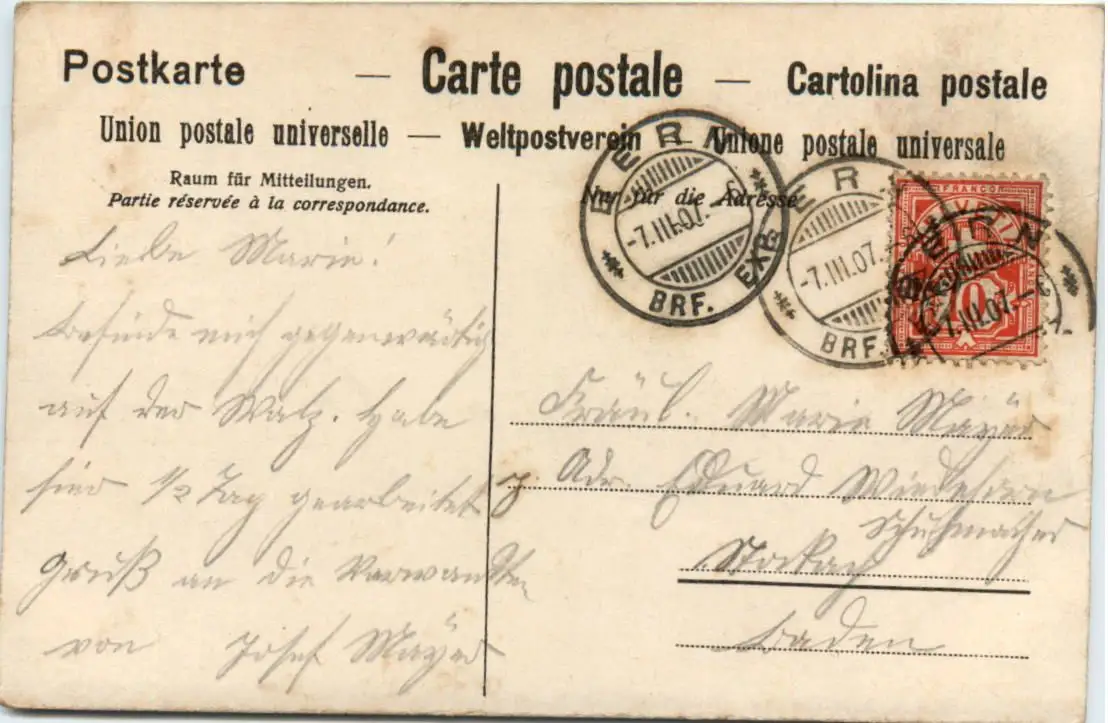 Postkarte — Carte postale — Cartolina postale
Union postale universelle — Weltpostverein — Unione postale universale
Raum für Mitteilungen.
Partie réservée à la correspondance.
Nur für die Adresse
BERN
-7.III.07.
BRF. EXP.
BERN
-7.III.07.
BRF.
FRANCO
HELVETIA
10
BERN
7.III.07.
Liebe Marie!
befinde mich gegenwärtig
auf der Walz. Habe
hier 1/2 Tag gearbeitet
Gruß an die Verwandten
von Josef Mayer
Fräul. Marie Mayer
Adr. Eduard
Schuhmacher
Stockach
Baden